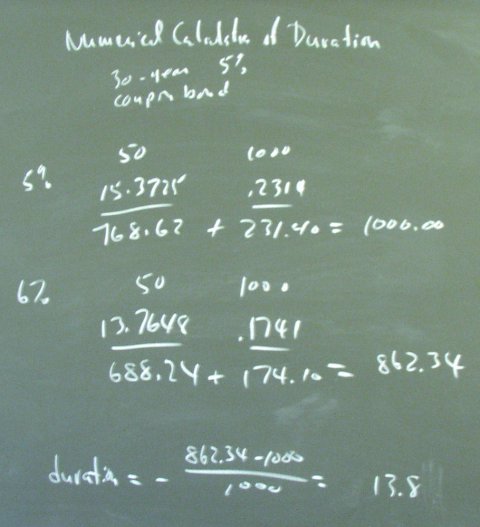 Numerical Calculation of Duration
30-year 5%
coupon bond
50 1000
5% 15.3725 .2314
768.62 + 231.40 = 1000.00
50 1000
6% 13.7648 .1741
688.24 + 174.10 = 862.34
862.34 - 1000
duration = - = 13.8
1000